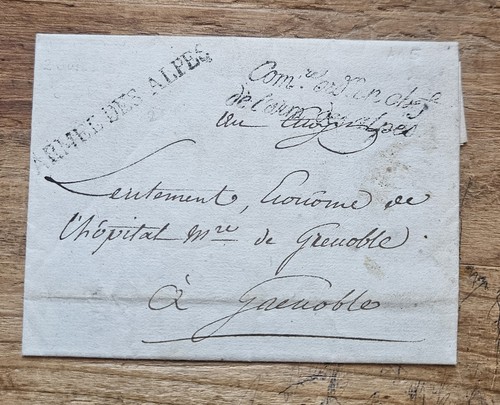 ARMÉE DES ALPES
Com.re ord.r en chef
de l'armée des alpes
au
Lentement, Econome de
l'hôpital m.re de Grenoble.
à Grenoble